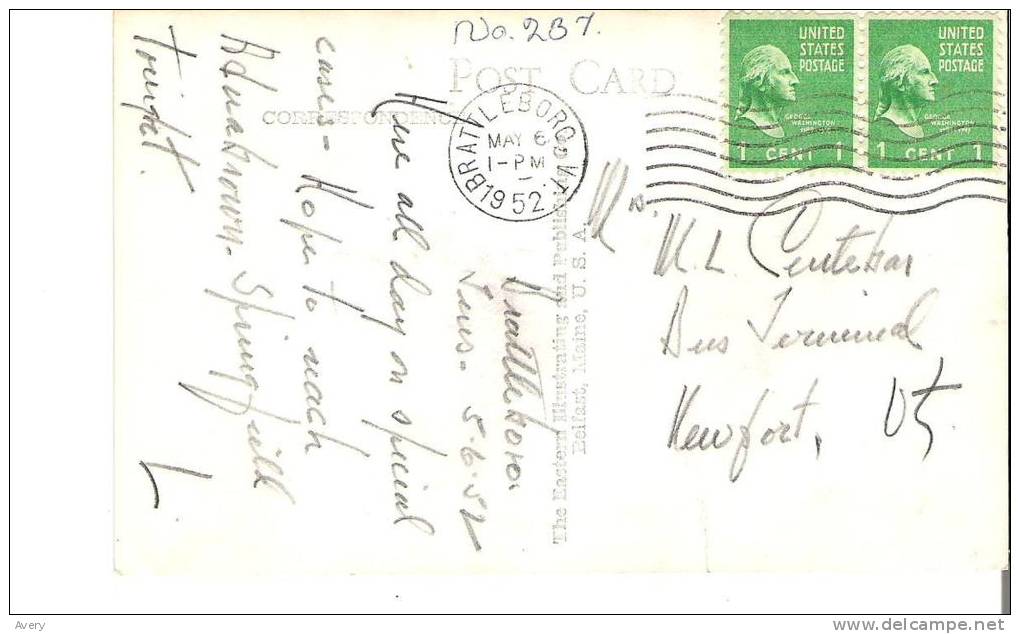 No. 237.
POST CARD
CORRESPONDENCE
UNITED STATES POSTAGE
GEORGE WASHINGTON
1 CENT 1
UNITED STATES POSTAGE
GEORGE WASHINGTON
1 CENT 1
BRATTLEBORO, VT.
MAY 6
1-PM
1952
Brattleboro.
5.6.52
Here all day on special
case - Hope to reach
Springfield
tonight.
L
The Eastern Illustrating and Publishing Co.
Belfast, Maine, U. S. A.
M. L. Centebar
Bus Terminal
Newport, Vt
Avery
delcampe.net